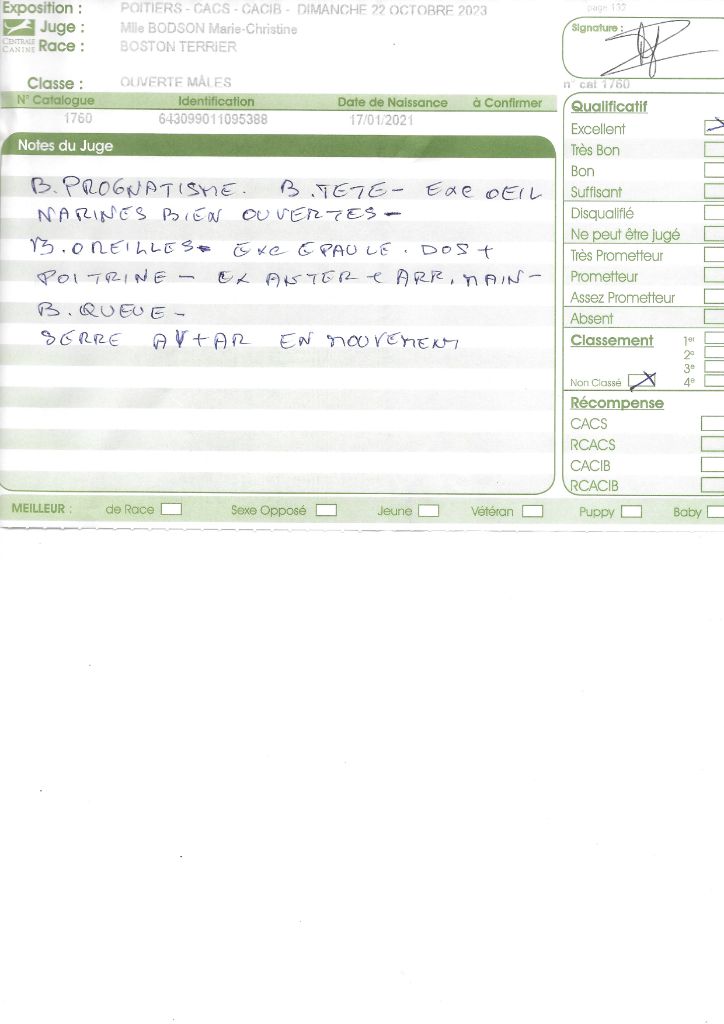 Exposition : POITIERS - CACS - CACIB - DIMANCHE 22 OCTOBRE 2023
Juge : Mlle BODSON Marie-Christine
CENTRALE CANINE
Race : BOSTON TERRIER
Classe : OUVERTE MÂLES
N° Catalogue Identification Date de Naissance à Confirmer
1760 643099011095388 17/01/2021
Notes du Juge
B. PROGNATISME. B. TETE - EXC OEIL
NARINES BIEN OUVERTES -
B. OREILLES - EXC EPAULE. DOS +
POITRINE - EX ANTER + ARR. MAIN -
B. QUEUE -
SERRE AV + AR EN MOUVEMENT
page 132
Signature :
n° cat 1760
Qualificatif
Excellent
Très Bon
Bon
Suffisant
Disqualifié
Ne peut être jugé
Très Prometteur
Prometteur
Assez Prometteur
Absent
Classement 1er
2e
3e
Non Classé 4e
Récompense
CACS
RCACS
CACIB
RCACIB
MEILLEUR : de Race Sexe Opposé Jeune Vétéran Puppy Baby